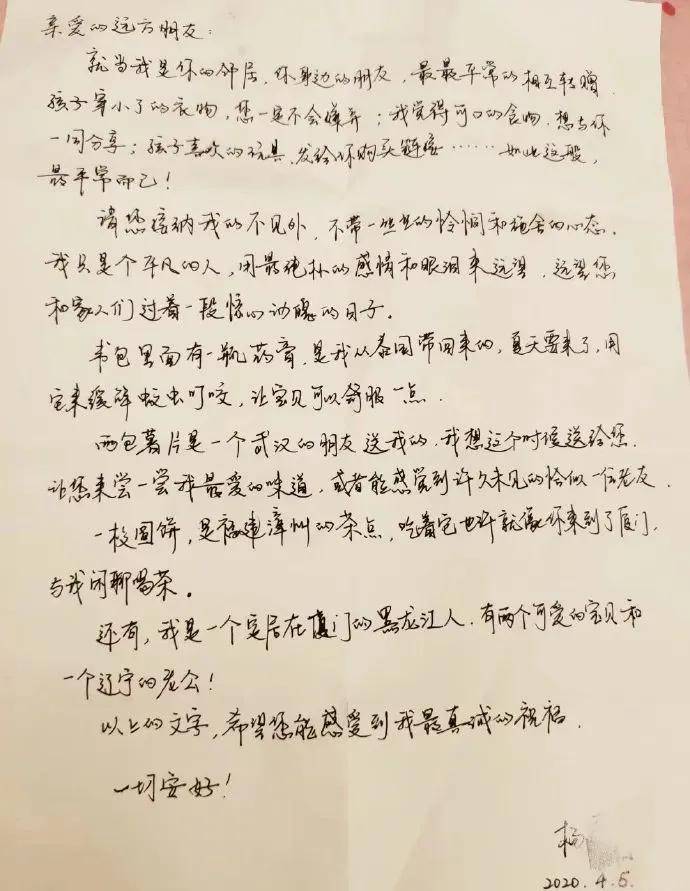 亲爱的远方朋友：
就当我是你的邻居，你身边的朋友，最最平常的相互转赠，
孩子穿小了的衣物，您一定不会嫌弃；我觉得可口的食物，想与你
一同分享；孩子喜欢的玩具，发给你购买链接……如此这般，
最平常而已！
请您接纳我的不见外，不带一丝丝的怜悯和施舍的心态。
我只是个平凡的人，用最纯朴的感情和眼泪来远望，远望您
和家人们过着一段惊心动魄的日子。
书包里面有一瓶药膏，是我从泰国带回来的，夏天要来了，用
它来缓解蚊虫叮咬，让宝贝可以舒服一点。
两包薯片是一个武汉的朋友送我的，我想这个时候送给您，
让您来尝一尝我最爱的味道，或者能感觉到许久未见的恰似一位老友。
一枚圆饼，是福建漳州的茶点，吃着它也许就像你来到了厦门，
与我闲聊喝茶。
还有，我是一个定居在厦门的黑龙江人，有两个可爱的宝贝和
一个辽宁的老公！
以上的文字，希望您能感受到我最真诚的祝福。
一切安好！
杨
2020.4.5.